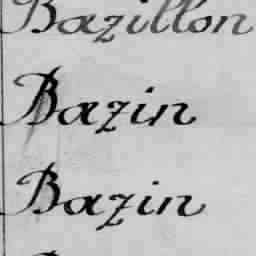 Bazillon
Bazin
Bazin